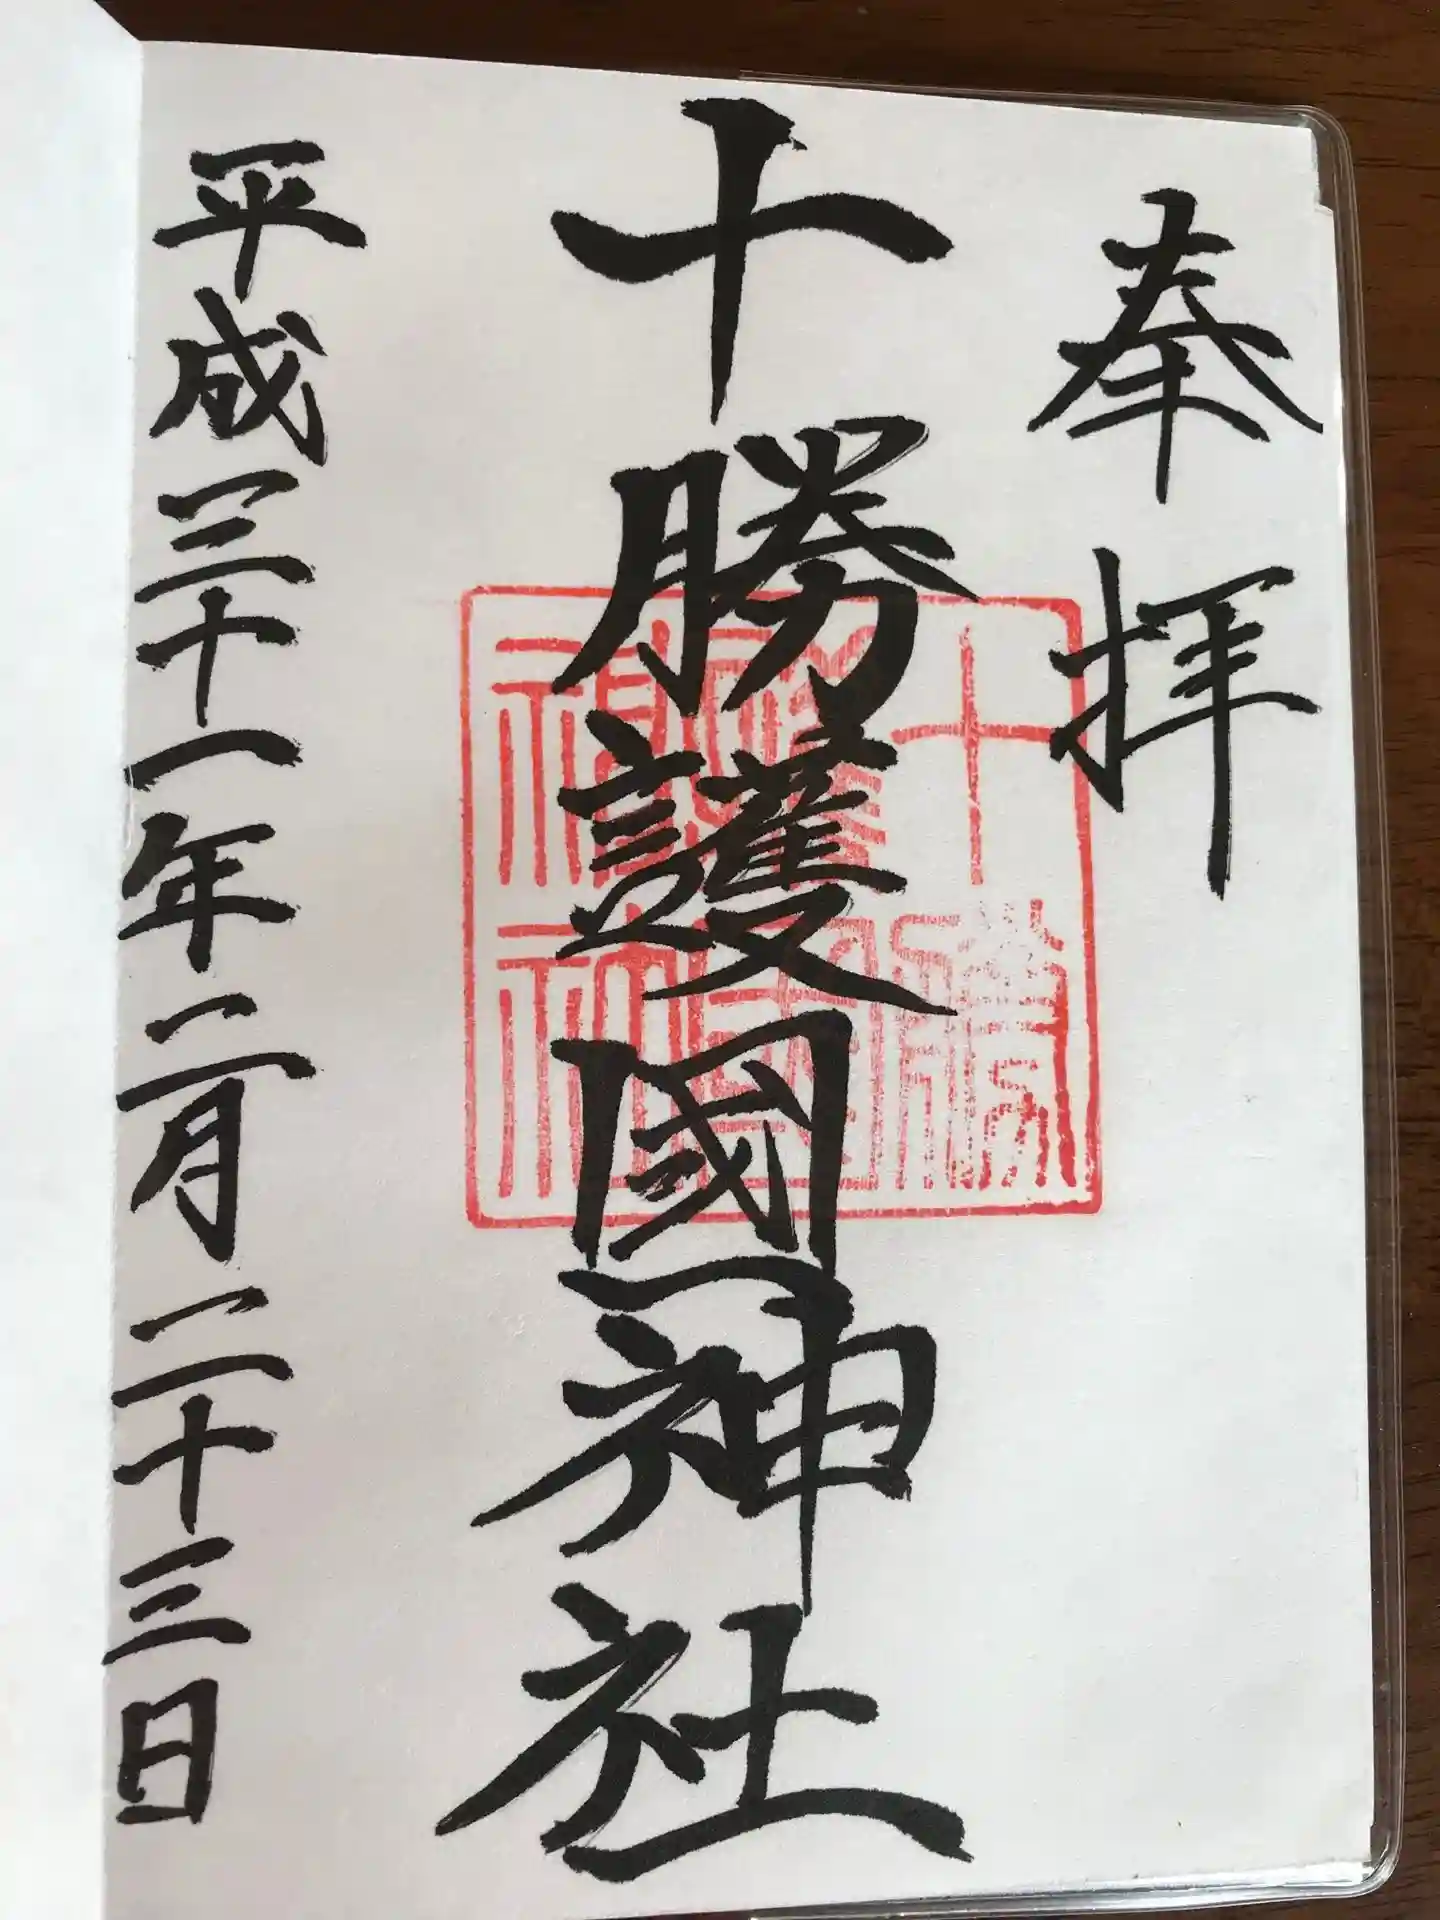 奉拝
十勝護國神社
十勝護国神社
平成三十一年二月二十三日